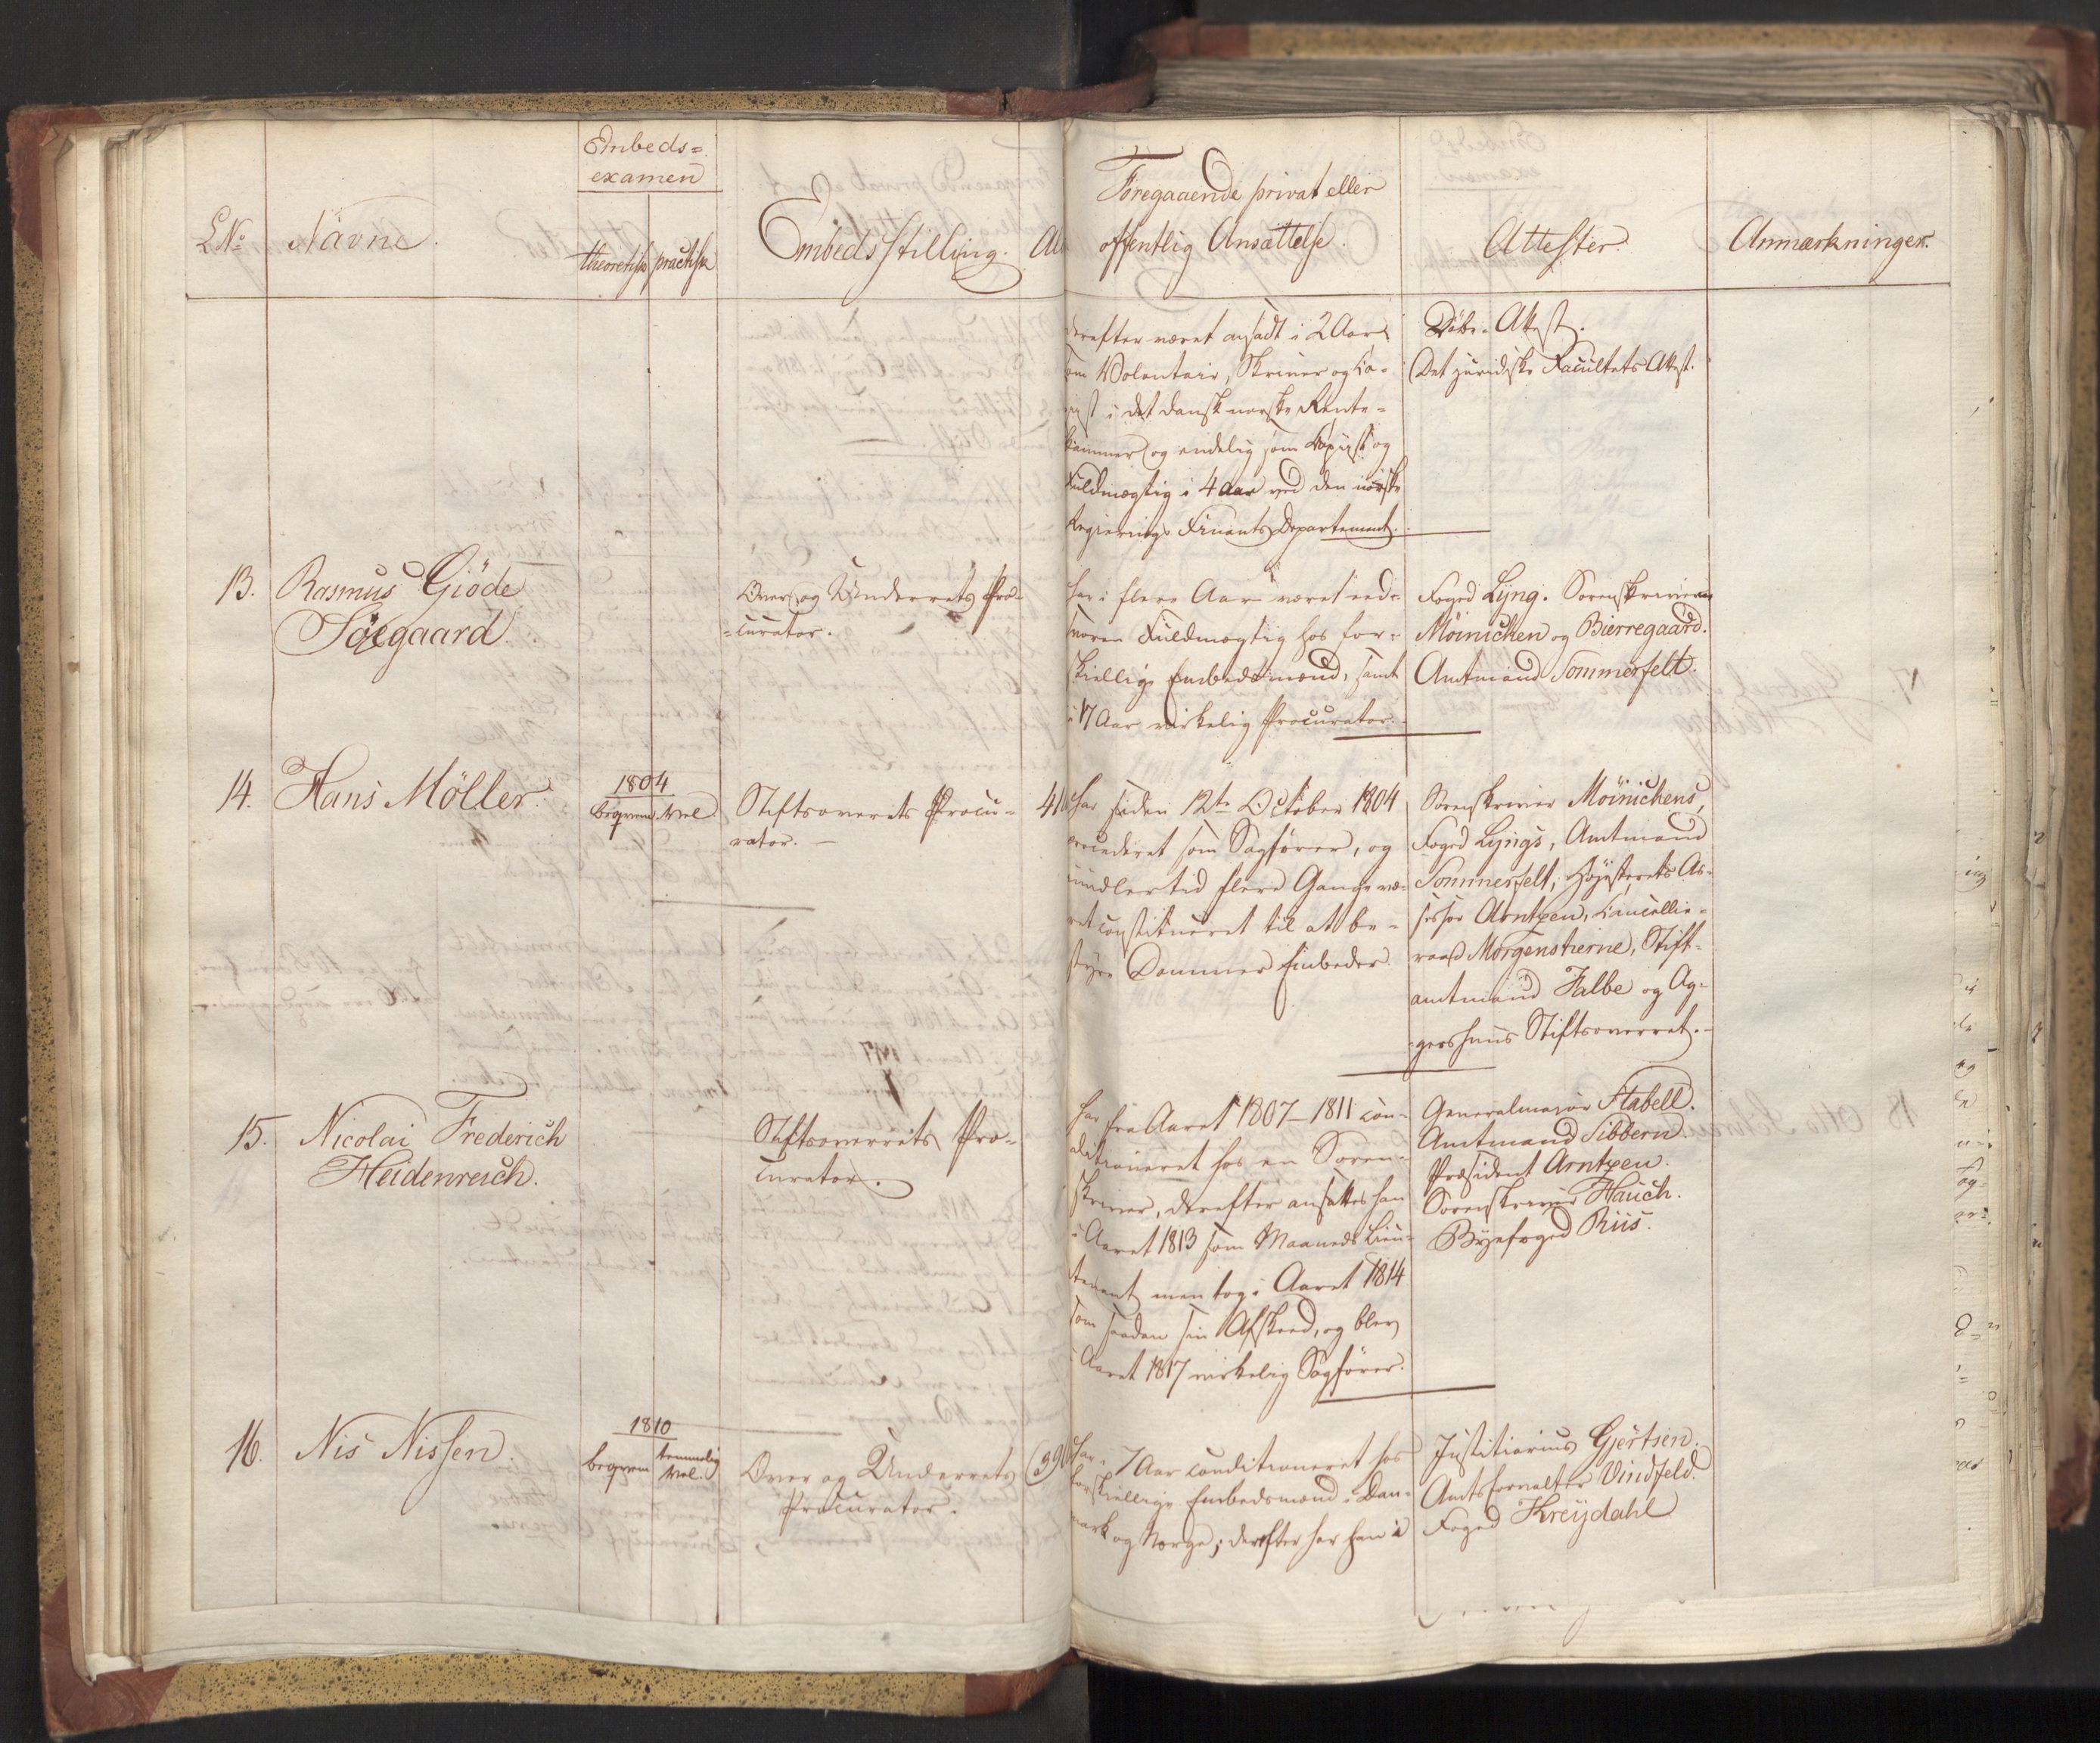 Embeds=
examen
L.No
Navne.
theoretisk practisk
Embedsstilling.
Al
Foregaaende privat eller
offentlig Ansættelse.
Attester.
Anmærkninger.
derefter været ansadt i 2 Aar
som Volontair, Skriver og Co-
pist i det dansk norske Rente-
kammer og endelig som Copiist og
Fuldmægtig i 4 Aar ved den norske
Regierings Finants Departement.
Døbe-Attest.
Det juridiske Facultets Attest.
13.
Rasmus Giöde
Söegaard.
Over og Underrets Pro-
=curator.
har i flere Aar været
Fuldmægtig hos for-
skiellige Embedsmænd, samt
i 17 Aar virkelig Procurator.
Foged Lyng. Sorenskriverne
Möinichen og Bierregaard.
Amtmand Sommerfelt.
14.
Hans Möller.
1804
beqvem Vel
Stiftsoverets Procu-
rator.
41
har siden 12te October 1804
procederet som Sagfører, og
imidlertid flere Gange væ-
ret constitueret til at be-
styre Dommer Embeder.
Sorenskriver Möinichens,
Foged Lyngs, Amtmand
Sommerfelt, Høyesterets As-
sessor Arntzen, Cancellie-
raad Morgenstierne, Stift-
amtmand Falbe og Ag-
gershuus Stiftsoverret.
15.
Nicolai Frederich
Heidenreich.
Stiftsoverrets Pro-
curator.
har fra Aaret 1807-1811 con-
ditioneret hos en Soren-
skriver, derefter ansattes han
i Aaret 1813 som Maaneds Lieu-
tenant, men tog i Aaret 1814
som saadan sin Afskeed, og blev
i Aaret 1817 virkelig Sagfører.
Generalmajor Stabell.
Amtmand Sibbern.
Præsident Arntzen.
Sorenskriver Hauch.
Byefoged Riis.
16.
Nis Nissen.
1810
beqvem temmelig
Vel.
Over og Underrets
Procurator.
39
har i 7 Aar conditioneret hos
forskiellige Embedsmænd i Dan-
mark og Norge; derefter har han i
Justitiarius Gjertsen.
Amtsforvalter Vindfeld.
Foged Kreydahl